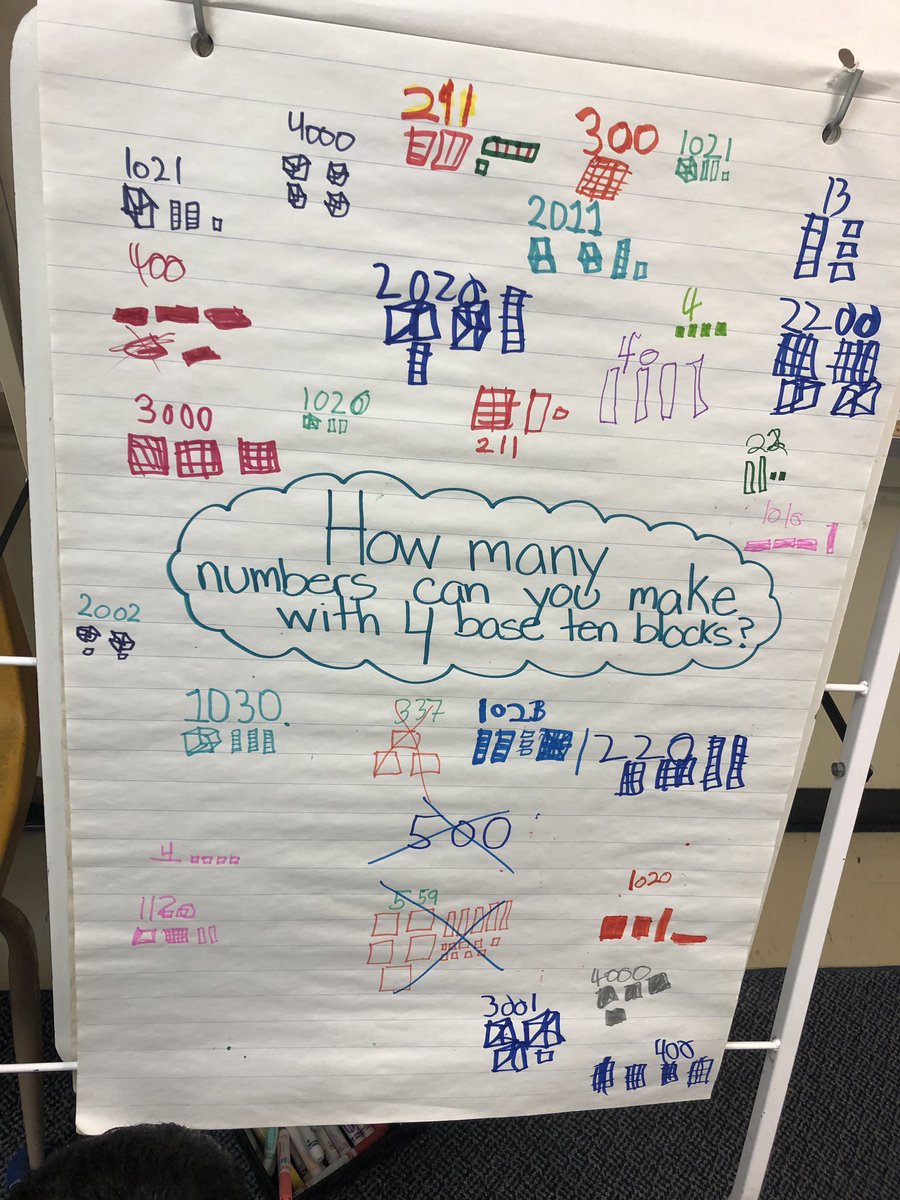 211
4000
300
1021
1021
13
2011
400
2020
4
2200
40
3000
1020
211
22
1010
How many
numbers can you make
with 4 base ten blocks?
2002
1030
337
1023
1220
500
4
559
1020
1120
4000
3001
400